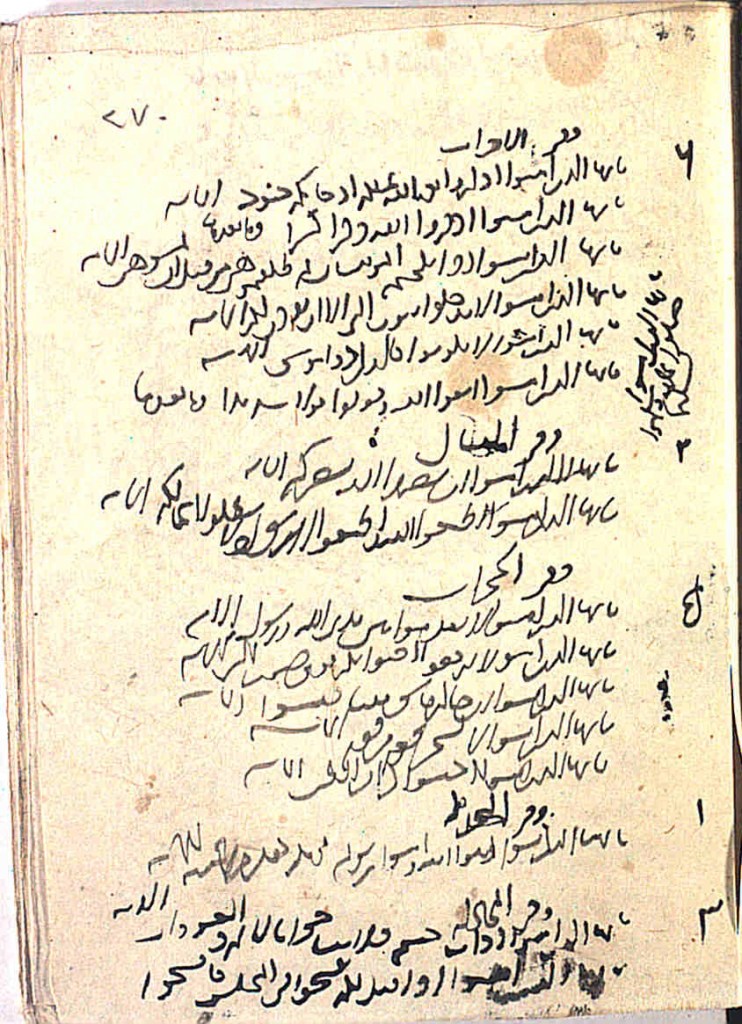 ٢٧٠
وفي الاحزاب
ياايها الذين امنوا اذكروا نعمة الله عليكم اذ جاتكم جنود الايه
ياايها الذين امنوا اذكروا الله ذكرا كثيرا وما بعدها
ياايها الذين امنوا اذا نكحتم المومنات ثم طلقتموهن من قبل ان تمسوهن الايه
ياايها الذين امنوا لا تدخلوا بيوت النبي الا ان يوذن لكم الايه
ياايها الذين امنوا لا تكونوا كالذين اذوا موسى الايه
ياايها الذين امنوا اتقوا الله وقولوا قولا سديدا وما بعدها
ياايها الذين امنوا صلوا عليه وسلموا
٦
وفي القتال
٢
ياايها الذين امنوا ان تنصروا الله ينصركم الايه
ياايها الذين امنوا اطيعوا الله واطيعوا الرسول ولا تبطلوا اعمالكم الايه
وفي الحجرات
ياايها الذين امنوا لا تقدموا بين يدي الله ورسوله الايه
ياايها الذين امنوا لا ترفعوا اصواتكم فوق صوت النبي الايه
ياايها الذين امنوا ان جاكم فاسق بنبا فتبينوا الايه
ياايها الذين امنوا لا يسخر قوم من قوم الايه
ياايها الذين امنوا اجتنبوا كثيرا من الظن الايه
وفي الحديد
١
ياايها الذين امنوا اتقوا الله وامنوا برسوله يوتكم كفلين من رحمته الايه
وفي المجادله
٣
ياايها الذين امنوا اذا تناجيتم فلا تتناجوا بالاثم والعدوان الايه
ياايها الذين امنوا اذا قيل لكم تفسحوا في المجلس فافسحوا